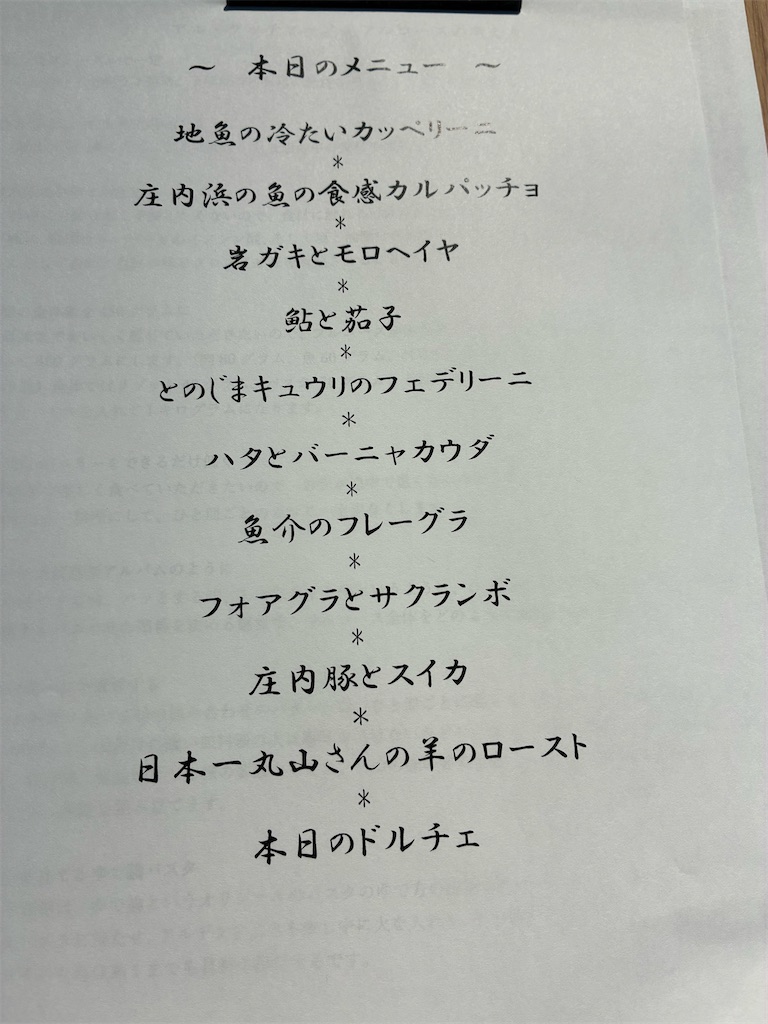 ～ 本日のメニュー ～
地魚の冷たいカッペリーニ
*
庄内浜の魚の食感カルパッチョ
*
岩ガキとモロヘイヤ
*
鮎と茄子
*
とのじまキュウリのフェデリーニ
*
ハタとバーニャカウダ
*
魚介のフレーグラ
*
フォアグラとサクランボ
*
庄内豚とスイカ
*
日本一丸山さんの羊のロースト
*
本日のドルチェ